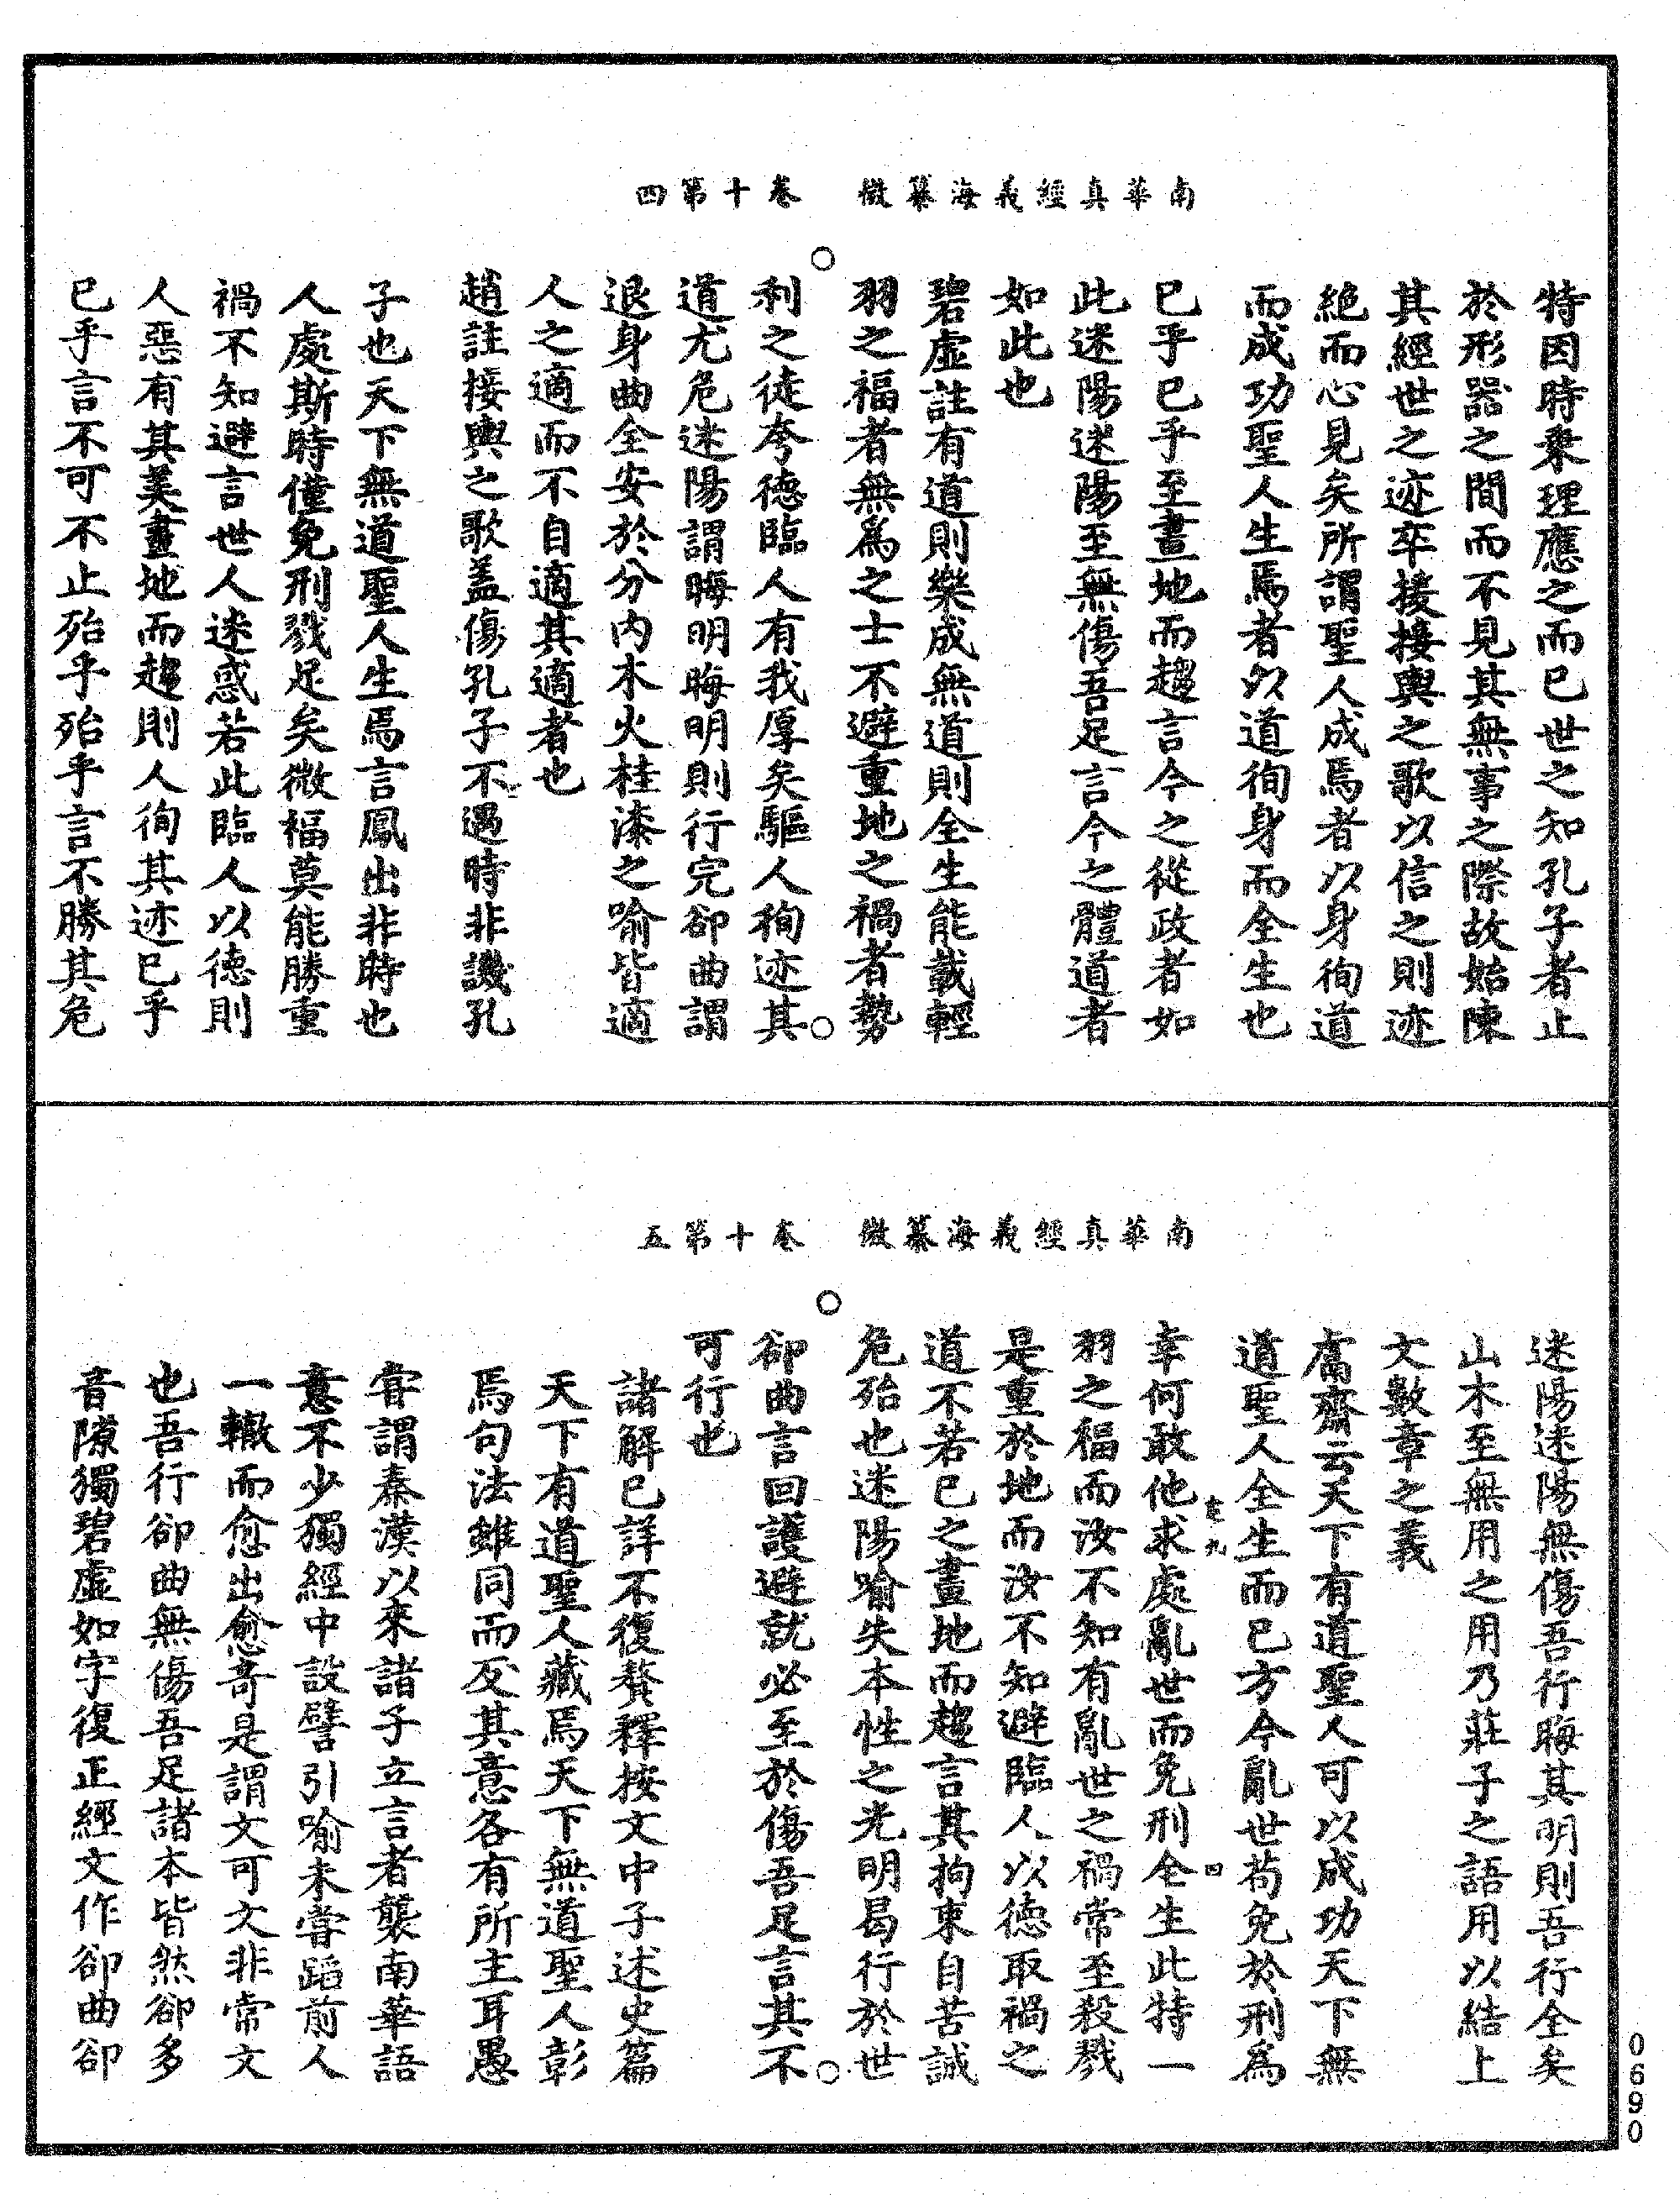 南華真經義海纂微　卷十第四
特因時乘理應之而已世之知孔子者止
於形器之間而不見其無事之際故始陳
其經世之迹卒接接輿之歌以信之則迹
絕而心見矣所謂聖人成焉者以身徇道
而成功聖人生焉者以道徇身而全生也
已乎已乎至畫地而趨言今之從政者如
此迷陽迷陽至無傷吾足言今之體道者
如此也
碧虛註有道則樂成無道則全生能載輕
羽之福者無為之士不避重地之禍者勢
利之徒夸德臨人有我厚矣驅人徇迹其
道尤危迷陽謂晦明晦明則行完卻曲謂
退身曲全安於分內木火桂漆之喻皆適
人之適而不自適其適者也
趙註接輿之歌蓋傷孔子不遇時非譏孔
子也天下無道聖人生焉言鳳出非時也
人處斯時僅免刑戮足矣微福莫能勝重
禍不知避言世人迷惑若此臨人以德則
人惡有其美畫地而趨則人徇其迹已乎
已乎言不可不止殆乎殆乎言不勝其危
南華真經義海纂微　卷十第五
迷陽迷陽無傷吾行晦其明則吾行全矣
山木至無用之用乃莊子之語用以結上
文數章之義
鬳齋云天下有道聖人可以成功天下無
道聖人全生而已方今亂世苟免於刑為
幸何敢他求處亂世而免刑全生此特一
羽之福而汝不知有亂世之禍常至殺戮
是重於地而汝不知避臨人以德取禍之
道不若已之畫地而趨言其拘束自苦誠
危殆也迷陽喻失本性之光明曷行於世
卻曲言回護避就必至於傷吾足言其不
可行也
諸解已詳不復贅釋按文中子述史篇
天下有道聖人藏焉天下無道聖人彰
焉句法雖同而反其意各有所主耳愚
嘗謂秦漢以來諸子立言者襲南華語
意不少獨經中設譬引喻未嘗蹈前人
一轍而愈出愈奇是謂文可文非常文
也吾行卻曲無傷吾足諸本皆然卻多
音隙獨碧虛如字復正經文作卻曲卻
0690